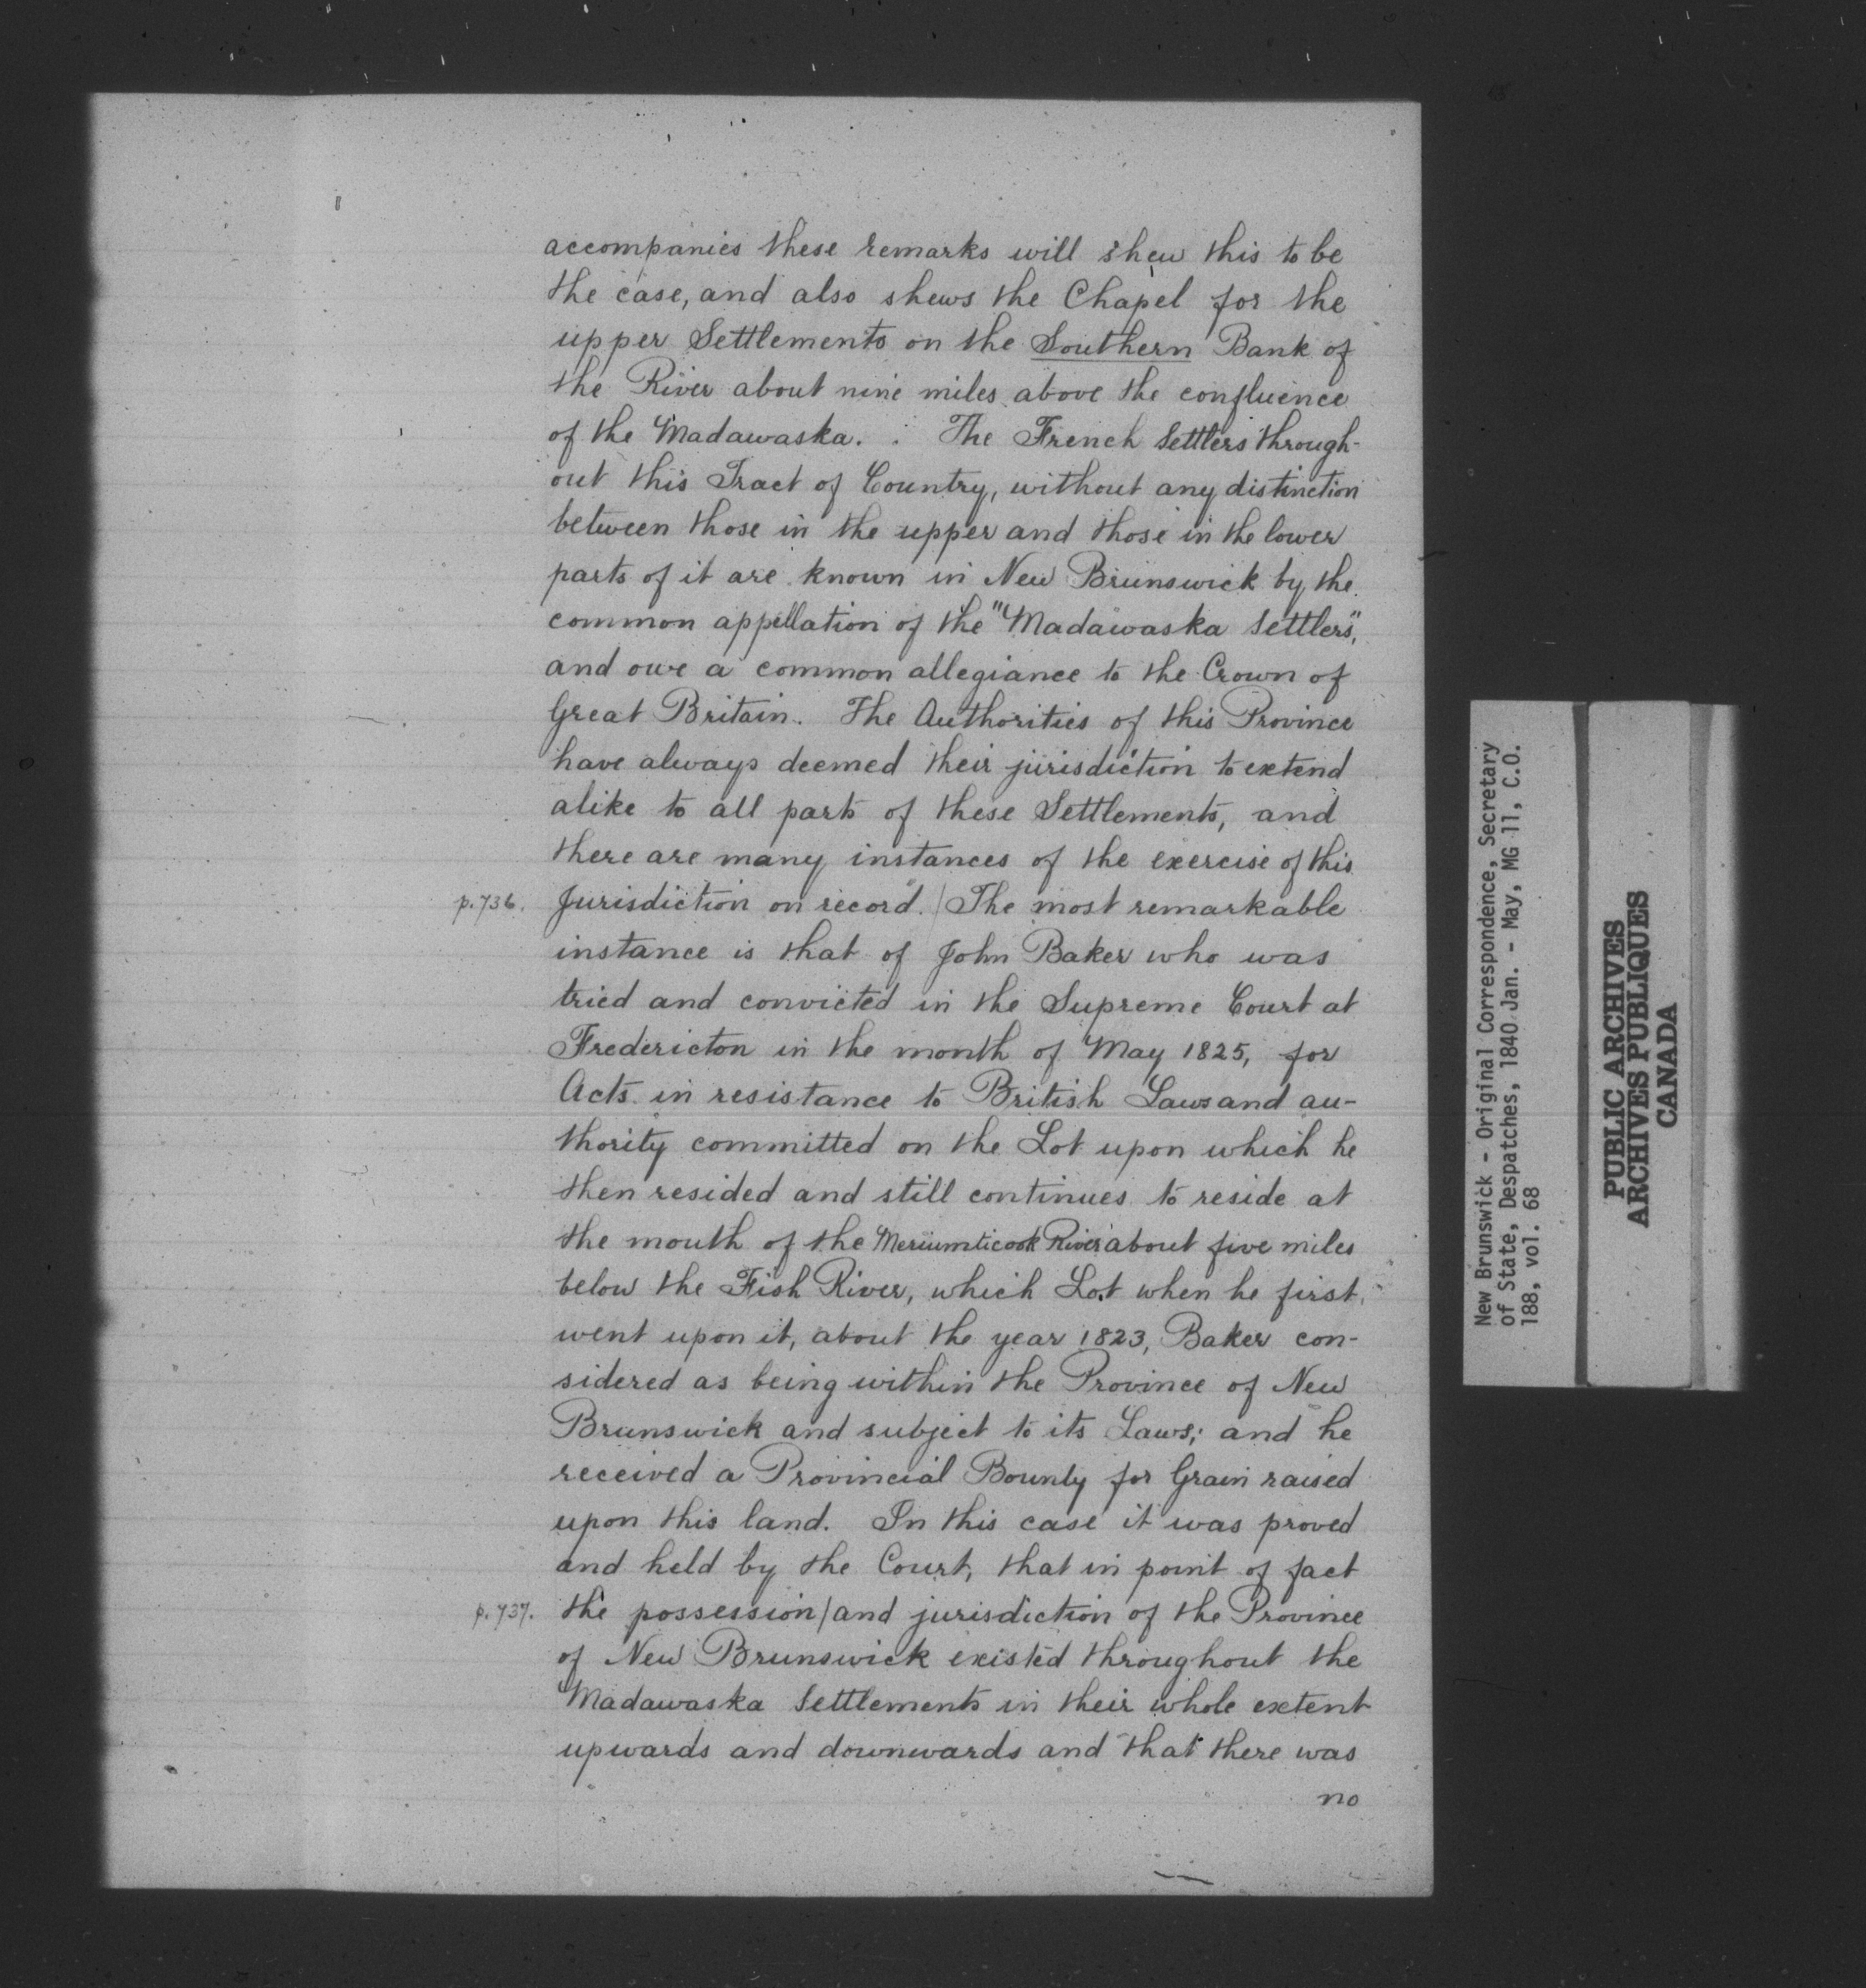 accompanies these remarks will shew this to be
the case, and also shews the Chapel for the
upper Settlements on the Southern Bank of
the River about nine miles above the confluence
of the Madawaska. The French Settlers through-
out this Tract of Country, without any distinction
between those in the upper and those in the lower
parts of it are known in New Brunswick by the
common appellation of the "Madawaska Settlers",
and owe a common allegiance to the Crown of
Great Britain. The Authorities of this Province
have always deemed their jurisdiction to extend
alike to all parts of these Settlements, and
there are many instances of the exercise of this
p.736. Jurisdiction on record. / The most remarkable
instance is that of John Baker who was
tried and convicted in the Supreme Court at
Fredericton in the month of May 1825, for
Acts in resistance to British Laws and au-
thority committed on the Lot upon which he
then resided and still continues to reside at
the mouth of the Meriumticook River about five miles
below the Fish River, which Lot when he first
went upon it, about the year 1823, Baker con-
sidered as being within the Province of New
Brunswick and subject to its Laws; and he
received a Provincial Bounty for Grain raised
upon this land. In this case it was proved
and held by the Court, that in point of fact
p.737. the possession / and jurisdiction of the Province
of New Brunswick existed throughout the
Madawaska Settlements in their whole extent
upwards and downwards and that there was
no
New Brunswick - Original Correspondence, Secretary
of State, Despatches, 1840 Jan. - May, MG 11, C.O.
188, vol. 68
PUBLIC ARCHIVES
ARCHIVES PUBLIQUES
CANADA